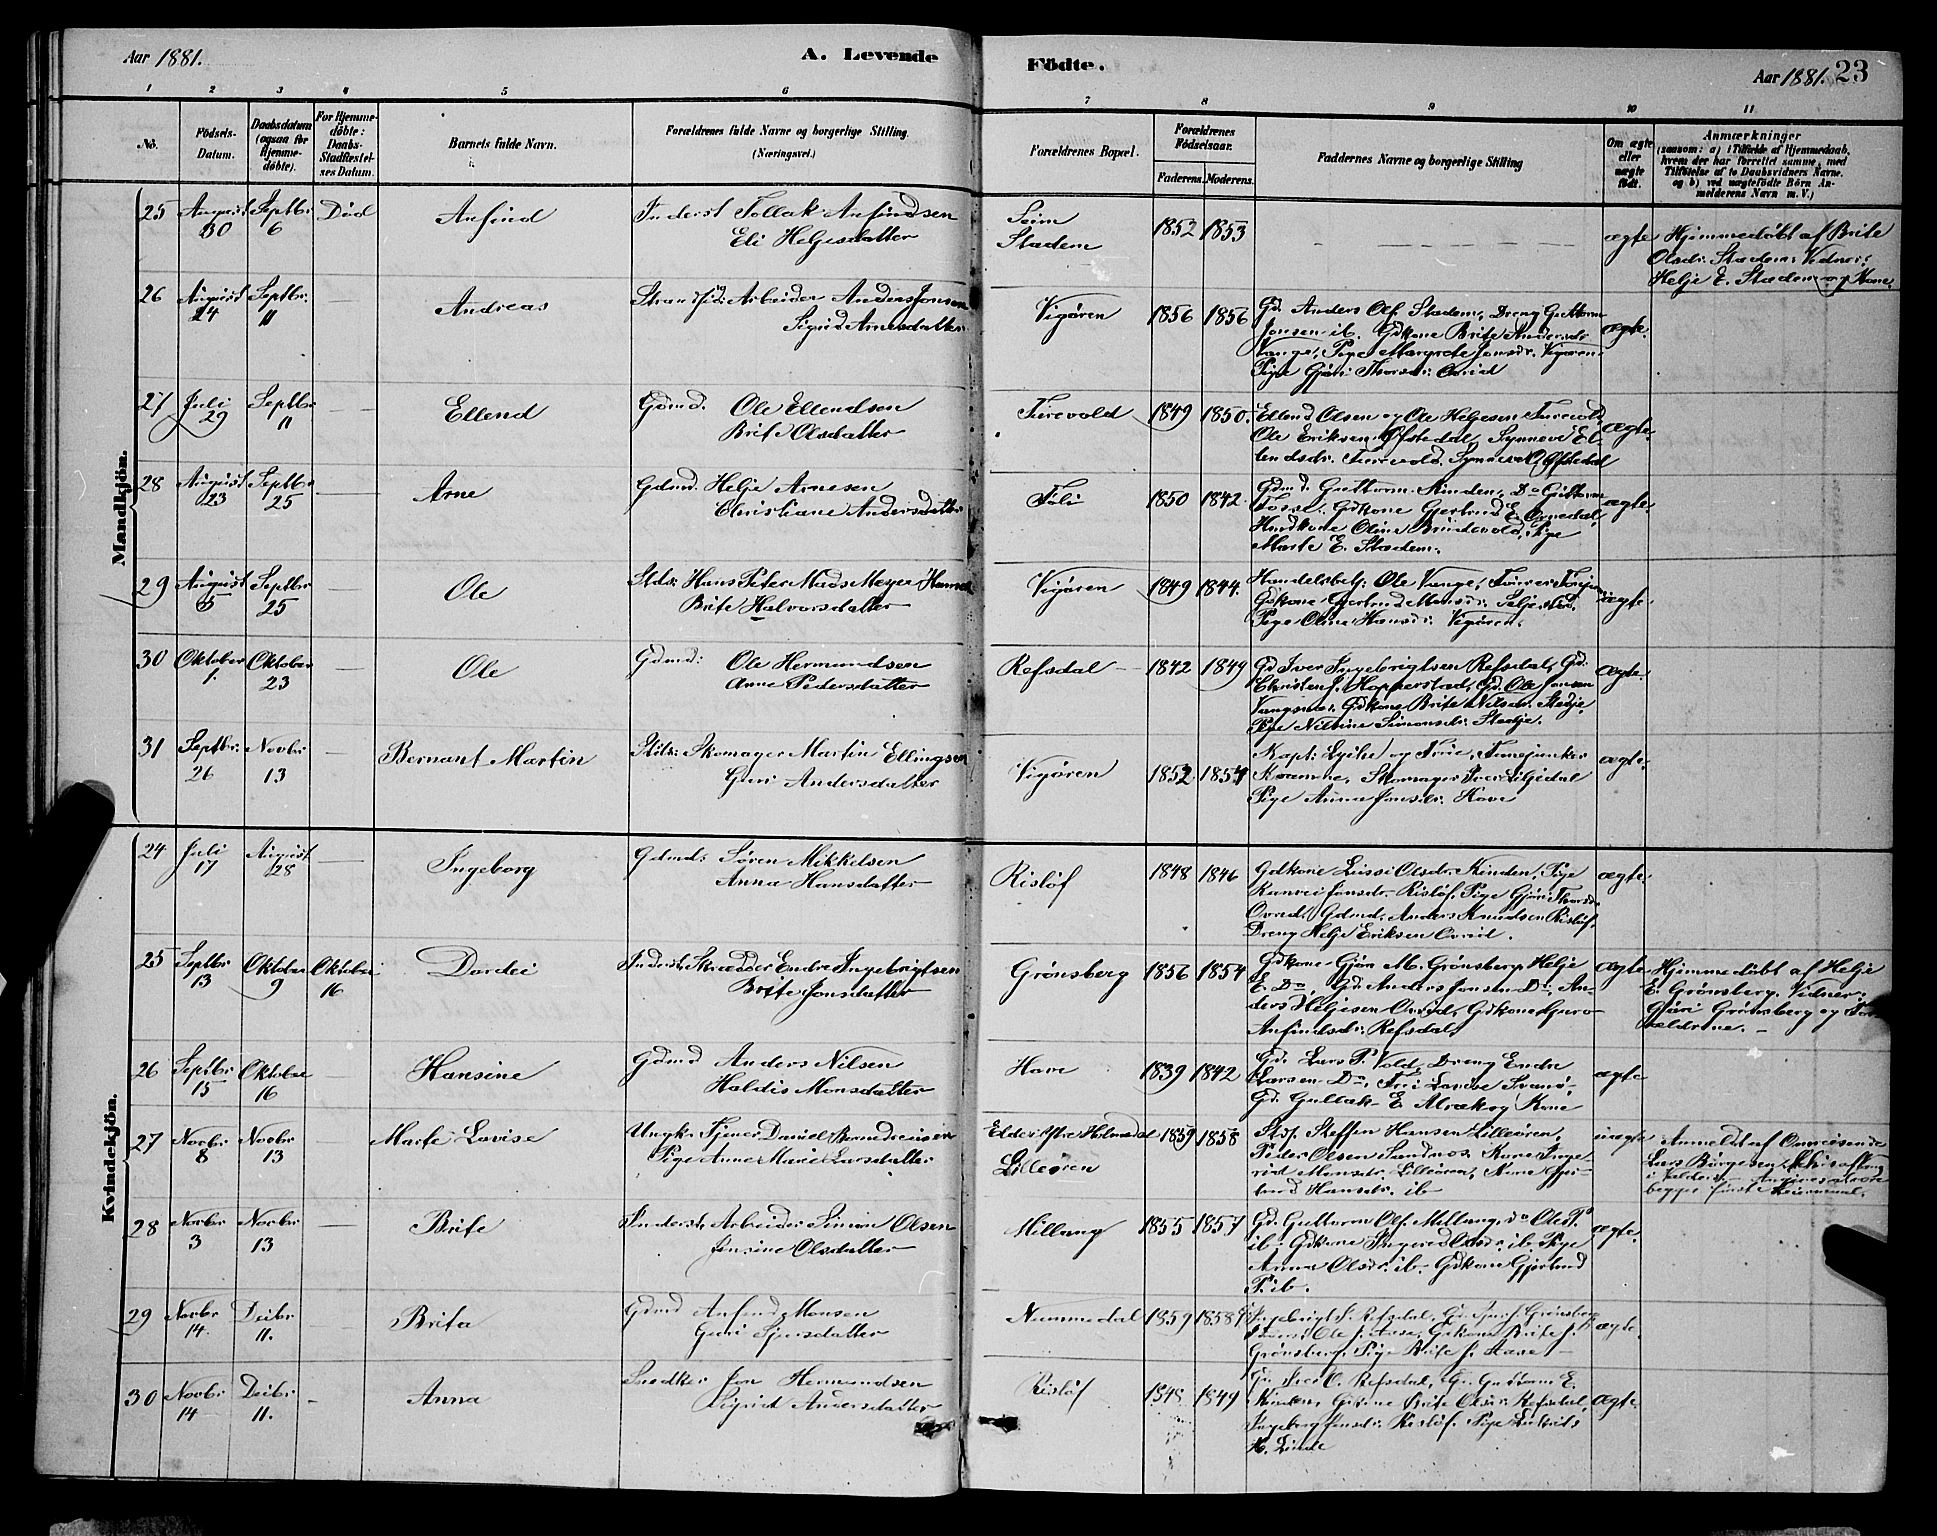 Aar 1881.
A. Levende
Födte.
Aar 1881. 23
1 2 3 4 5 6 7 8 9 10 11
No.
Födsels-Datum.
Daabsdatum (ogsaa for Hjemme-döbte).
For Hjemme-döbte: Daabs-Stadfæstel-ses Datum.
Barnets fulde Navn.
Forældrenes fulde Navne og borgerlige Stilling. (Næringsvei.)
Forældrenes Bopæl.
Forældrenes Födselsaar.
Faderens. Moderens.
Faddernes Navne og borgerlige Stilling
Om ægte eller uægte födt.
Anmærkninger
(saasom: a) i Tilfælde af Hjemmedaab, hvem der har forrettet samme, med Tilföielse af to Daabsvidners Navne, og b) ved uægtefödte Börn An-melderens Navn m. V.)
Mandkjön.
25 August 30 Septbr 6 Död Anfind Inderst Tollak Anfindsen
Eli Helgesdatter
Seim
Stadem 1852 1853 - - - - ægte Hjemmedöbt af Brite
Olsdr. Stadem. Vidner:
Helje E. Stadem og Kone.
26 August 24 Septbr. 11 — Andreas Strandsid: Arbeider Anders Jonsen
Sigrid Arnesdatter
Vigören 1856 1856 Gd. Anders Ols. Stadem, Dreng Guttorm
Jonsen ib. Gdkone Brite Andersdr.
Vange, Pige Margrete Jonsdr. Vigören.
Pige Gjöri Thorsdr. Ovrid ægte.
27 Juli 29 Septbr 11 — Ellend Gdmd. Ole Ellendsen
Brite Olsdatter
Turevold 1849 1850. Ellend Olsen og Ole Helgesen Turevold
Ole Eriksen Ofstedal, Synneve El-
lendsdr. Turevold. Synneve O. Ofstedal ægte.
28 August 23 Septbr 25 — Arne Gdmd. Helje Arnesen
Christiane Andersdatter
Föli 1850 1842. Gdmd. Guttorm Kinden, Do Guttorm
Fosse, Gdkone Gertrud E. Ornedal,
Olina Brudevold, Pige
Marte E. Stadem. ægte.
29 August 5 Septbr 25 — Ole Stds: Hans Peter Mads Meyer Hansen
Brite Halvorsdatter
Vigören 1849 1844. Handelsbetj. Ole Vange,
Gdkone Gertrud Monsdr.
Pige Oline Hansdr. Vigören. ægte.
30 Oktober 1. Oktober 23 — Ole Gdmd: Ole Hermundsen
Anne Pedersdatter
Refsdal 1842 1849 Gd. Iver Ingebrigtsen Refsdal, Gd.
Christen J. Hopperstad, Gd. Ole Jansen
Vangsnes, Gdkone Brite Nilsdr. Stedje,
Pige Nilsine Simonsdr. Stedje. ægte.
31 Septbr. 26 Novbr 13 — Bernant Martin Stds: Skomager Martin Ellingsen
Guri Andersdatter
Vigören 1852 1854 Kapt: og Frue,
Skomager Iver
Pige Anna Jonsdr. Hove ægte.
Kvindekjön.
24 Juli 17 August 28 — Ingeborg Gdmd: Sören Mikkelsen
Anna Hansdatter
Rislöf 1848 1846 Gdkone Lussi Olsdr. Kinden, Pige
Jonsdr. Rislöf, Pige Gjöri Thorsdr.
Ovrid, Gdmd. Anders Knudsen Rislöf.
Dreng Helje Eriksen Ovrid. ægte.
25 Septbr 13 Oktober 9 Oktober 16 Dordei Inderst, Skrædder Endre Ingebrigtsen
Brite Jonsdatter
Grönsberg 1856 1854 Gdkone Gjöri M. Grönsberg. Helje
E. Do, Gd. Anders Jonsen Do, An-
ders Heljesen Ovrid, Gdkone Guro
Anfindsdr. Refsdal ægte Hjemmedöbt af Helje
E. Grönsberg. Vidner:
Gjöri Grönsberg og For-
ældrene.
26 Septbr 15 Oktober 16 — Hansine Gdmd Anders Nilsen
Haldis Monsdatter
Hove 1839 1842 Gd. Lars P. Vold, Dreng Endre
Larsen Do, Frk Lovise Svanö,
Gd. Gullak E. og Kone ægte
27 Novbr 8 Novbr 13 — Marte Lovise Ungk. Tjener Daniel
Pige Anne Marie Larsdatter
Ytre Holmedal
Lilleören 1859 1858 Stds. Steffen Hansen Lilleören,
Peder Olsen Sandnes, Kone Inge-
rid Monsdr. Lilleören, Kone Gjer-
trud Hansdr. ib uægte Anmeldt af
Lars Börgesen
28 Novbr 3 Novbr 13 — Brite Inderst, Arbeider Simon Olsen
Jensine Olsdatter
Millang 1855 1857 Gd. Guttorm Ols. Millang, do Ole P.
ib. Gdkone Ingerid Olsdr. ib. Pige
Anna Olsdr. ib. Gdkone Gjertrud
P. ib. ægte.
29 Novbr 14. Decbr 11. Brita Gdmd Anfind Monsen
Guri Sjursdatter
Nummedal 1859 1858 Ingebrigt S. Refsdal, Gd. Sjur J. Grönsberg
Ole J. Aase, Gdkone Brite J.
Grönsberg, Pige Brite J. Aase ægte
30 Novbr 14 Decbr 11. - Anna Snedker Jon Hermundsen
Sigrid Andersdatter
Rislöf 1848 1849 Gd. Iver O. Refsdal, Gd. Guttorm E.
Kinden, Brite Olsdr. Refsdal,
Ingeborg Jonsdr. Rislöf. Pige
H. Linde ægte